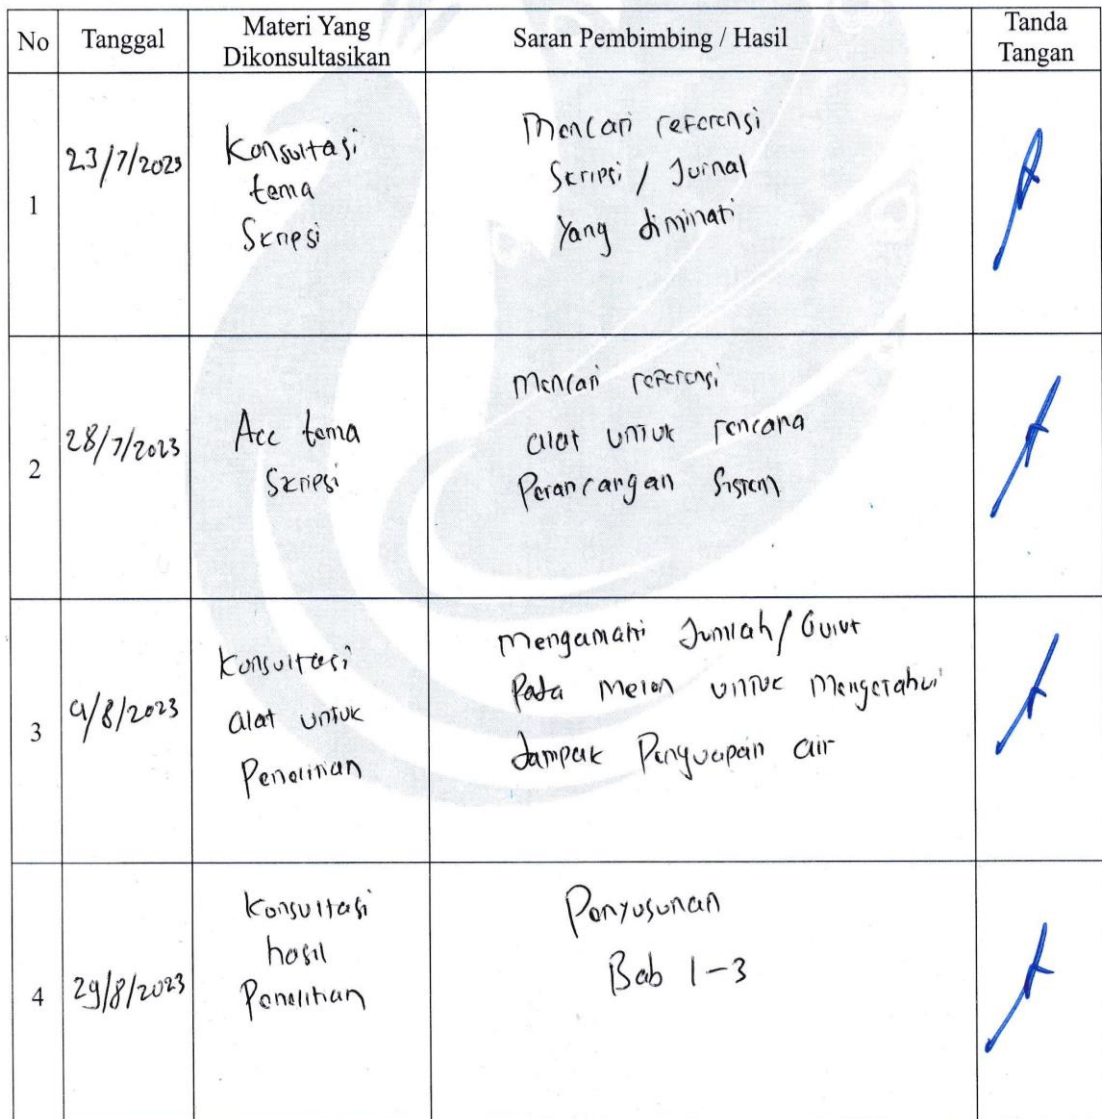 No Tanggal Materi Yang Dikonsultasikan Saran Pembimbing / Hasil Tanda Tangan
1
23/7/2023
Konsultasi
tema
Skripsi
Mencari referensi
Skripsi / Jurnal
Yang diminati
2
28/7/2023
Acc tema
Skripsi
Mencari referensi
alat untuk rencana
Perancangan Sistem
3
9/8/2023
Konsultasi
alat untuk
Penelitian
Mengamati Jumlah /
Pada Melon untuk Mengetahui
dampak Penguapan air
4
29/8/2023
Konsultasi
hasil
Penelitian
Penyusunan
Bab 1-3